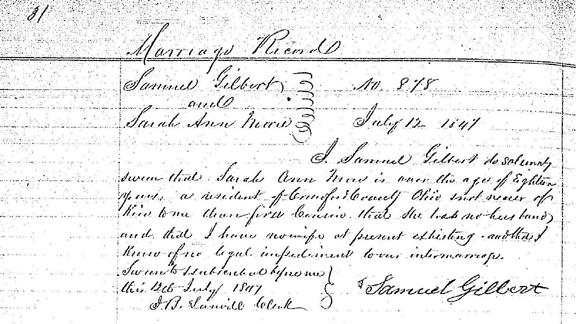 31
Marriage Record
Samuel Gilbert No. 878
and
Sarah Ann More July 12 1847
I, Samuel Gilbert do solemnly
swear that Sarah Ann More is over the age of Eighteen
years, a resident of Crawford County Ohio and nearer of
Kin to me than first Cousin. that She has no husband
and that I have no wife at present exhisting. and that I
Know of no legal impediment to our intermarriage.
Sworn to & subscribed before me
this 12th July 1847 Samuel Gilbert
J. B. Clerk